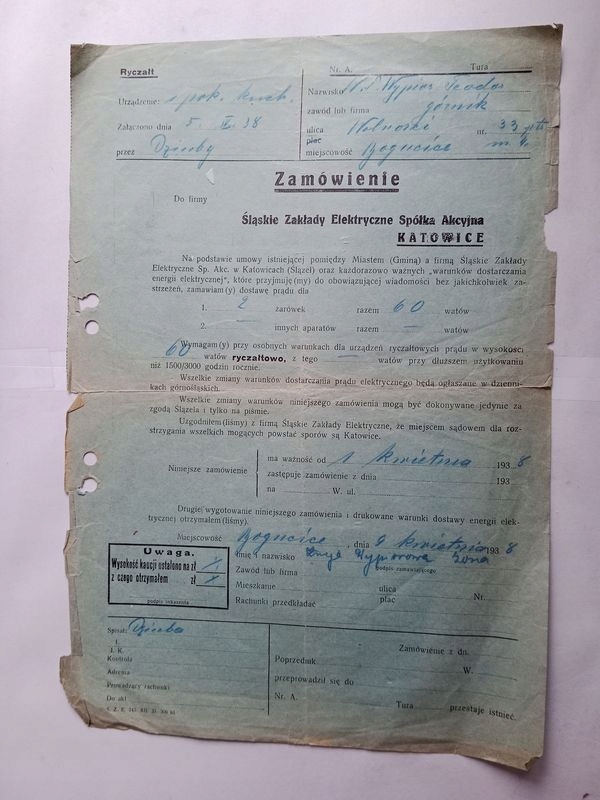 Ryczałt
Nr. A. Tura
Urządzenie:
Nazwisko Wypior Teodor
zawód lub firma górnik
Załączono dnia 5. 38
ulica Wolności nr. 33
plac
przez Dziuby
miejscowość Bogucice m 4.
Zamówienie
Do firmy
Śląskie Zakłady Elektryczne Spółka Akcyjna
KATOWICE
Na podstawie umowy istniejącej pomiędzy Miastem (Gminą) a firmą Śląskie Zakłady
Elektryczne Sp. Akc. w Katowicach (Ślązel) oraz każdorazowo ważnych „warunków dostarczania
energii elektrycznej", które przyjmuję(my) do obowiązującej wiadomości bez jakichkolwiek za-
strzeżeń, zamawiam(y) dostawę prądu dla
1. 2 żarówek razem 60 watów
2. — innych aparatów razem — watów
Wymagam(y) przy osobnych warunkach dla urządzeń ryczałtowych prądu w wysokości
60 watów ryczałtowo, z tego — watów przy dłuższem użytkowaniu
niż 1500/3000 godzin rocznie.
Wszelkie zmiany warunków dostarczania prądu elektrycznego będą ogłaszane w dzienni-
kach górnośląskich.
Wszelkie zmiany warunków niniejszego zamówienia mogą być dokonywane jedynie za
zgodą Ślązela i tylko na piśmie.
Uzgodniłem(liśmy) z firmą Śląskie Zakłady Elektryczne, że miejscem sądowem dla roz-
strzygania wszelkich mogących powstać sporów są Katowice.
ma ważność od 1 kwietnia 193 8
Niniejsze zamówienie zastępuje zamówienie z dnia 193
na W. ul.
Drugie wygotowanie niniejszego zamówienia i drukowane warunki dostawy energii elek-
trycznej otrzymałem(liśmy).
Miejscowość Bogucice, dnia 9 kwietnia 193 8
Uwaga.
Wysokość kaucji ustalono na zł
z czego otrzymałem zł
podpis inkasenta
imię i nazwisko Wypiorowa żona
podpis zamawiającego
Zawód lub firma
Mieszkanie ulica
plac Nr.
Rachunki przedkładać
Spisał: Dziuba
I.
J. K.
Kontrola
Adrema
Prowadzący rachunki
Do akt
Zamówienie z dn.
Poprzednik W.
przeprowadził się do
Nr. A. Tura przestaje istnieć.